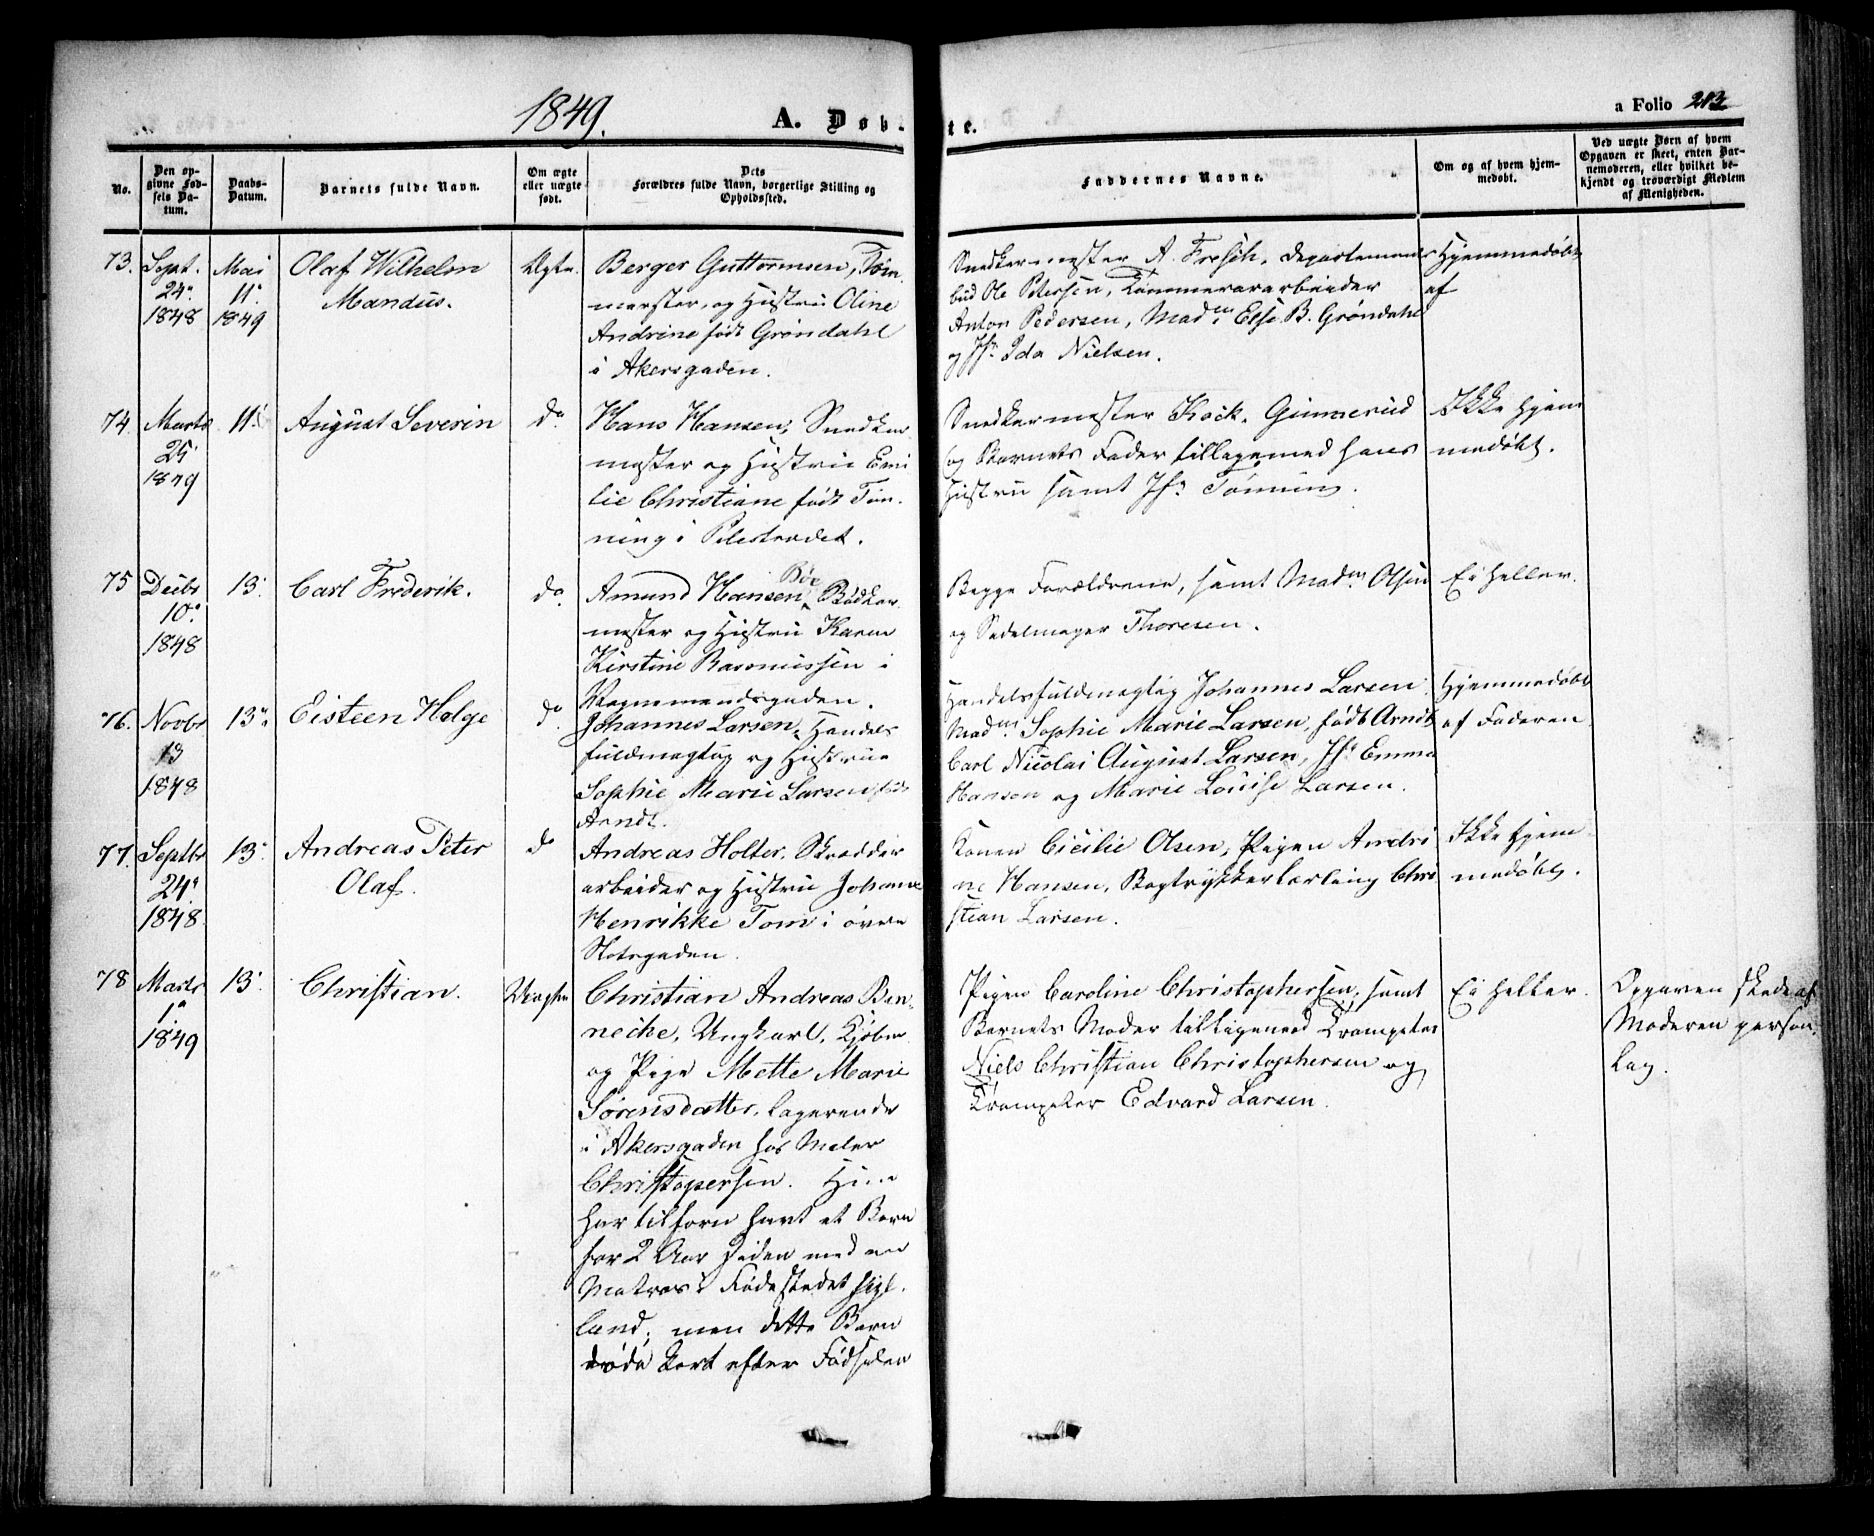 1849. A. Døb-
te.
a Folio 213
No.
Den op-
givne Fød-
sels Da-
tum.
Daabs-
Datum.
Barnets fulde Navn.
Om ægte
eller uægte
født.
Dets
Forældres fulde Navn, borgerlige Stilling og
Opholdssted.
Faddernes Navne.
Om og af hvem hjem-
medøbt.
Ved uægte Børn af hvem
Opgaven er skeet, enten Bar-
nemoderen, eller hvilket be-
kjendt og troværdigt Medlem
af Menigheden.
73.
Sept.
24.
1848
Mai
11.
1849
Olaf Wilhelm
Mandus.
Ægte.
Berger Guttormsen, Tøm-
merster, og Hustru Oline
Andrine født Grøndahl
i Akersgaden.
Snedkermester A. Frosch, Departements-
bud Ole Petersen, Tømmerarbeider
Anton Pedersen, Madm Else B. Grøndahl
og Jfr. Ida Nielsen.
Hjemmedøbt
af
74.
Marts
25
1849
11.
August Severin
do.
Hans Hansen, Snedker-
mester og Hustru Emi
lie Christiane født Tøn-
ning i Pilestrædet.
Snedkermester Kock. Ginnerud
og Barnets Fader tilligemed hans
Hustru samt Jfr. Tønning.
Ikke hjem
medøbt.
75
Decbr
10.
1848
13.
Carl Frederik.
do.
Amund Hansen Böe Bødker-
mester og Hustru Karen
Kirstine Rasmussen i
Vognmandsgaden.
Begge Forældrene, samt Madm. Olsen
og Sadelmager Thoresen.
Ei heller.
76.
Novbr
13
1848
13.
Eisteen Helge
do.
Johannes Larsen, Handels
fuldmægtig og Hustrue
Sophie Marie Larsen født
Arndt.
Handelsfuldmægtig Johannes Larsen
Madm. Sophie Marie Larsen, født Arndt
Carl Nicolai August Larsen, Jfr. Emma
Hansen og Marie Louise Larsen.
Hjemmedøbt
af Faderen
77.
Septbr
24.
1848.
13.
Andreas Peter
Olaf.
do
Andreas Holter, Skrædder
arbeider og Hustru Johanne
Henrikke Tom i øvre
Slotsgaden.
Konen Cicilie Olsen, Pigen Andri
ne Hansen, Bogtrykkerlærling Chri
stian Larsen.
Ikke hjem-
medøbt.
78
Marts
1.
1849
13.
Christian.
Uægte
Christian Andreas Ben-
neche, Ungkarl,
og Pige Mette Marie
Sørensdatter, logerende
i Akersgaden hos Maler
Christopersen. Hun
har tilforn havt et Barn
for 2 Aar siden med en
Matros i Fødestedet
land, men dette Barn
døde kort efter Fødselen
Pigen Caroline Christophersen, samt
Barnets Moder tilligemed Trompeter
Niels Christian Christophersen og
Trompeter Edvard Larsen.
Ei heller.
Opgaven skede af
Moderen person-
lig.